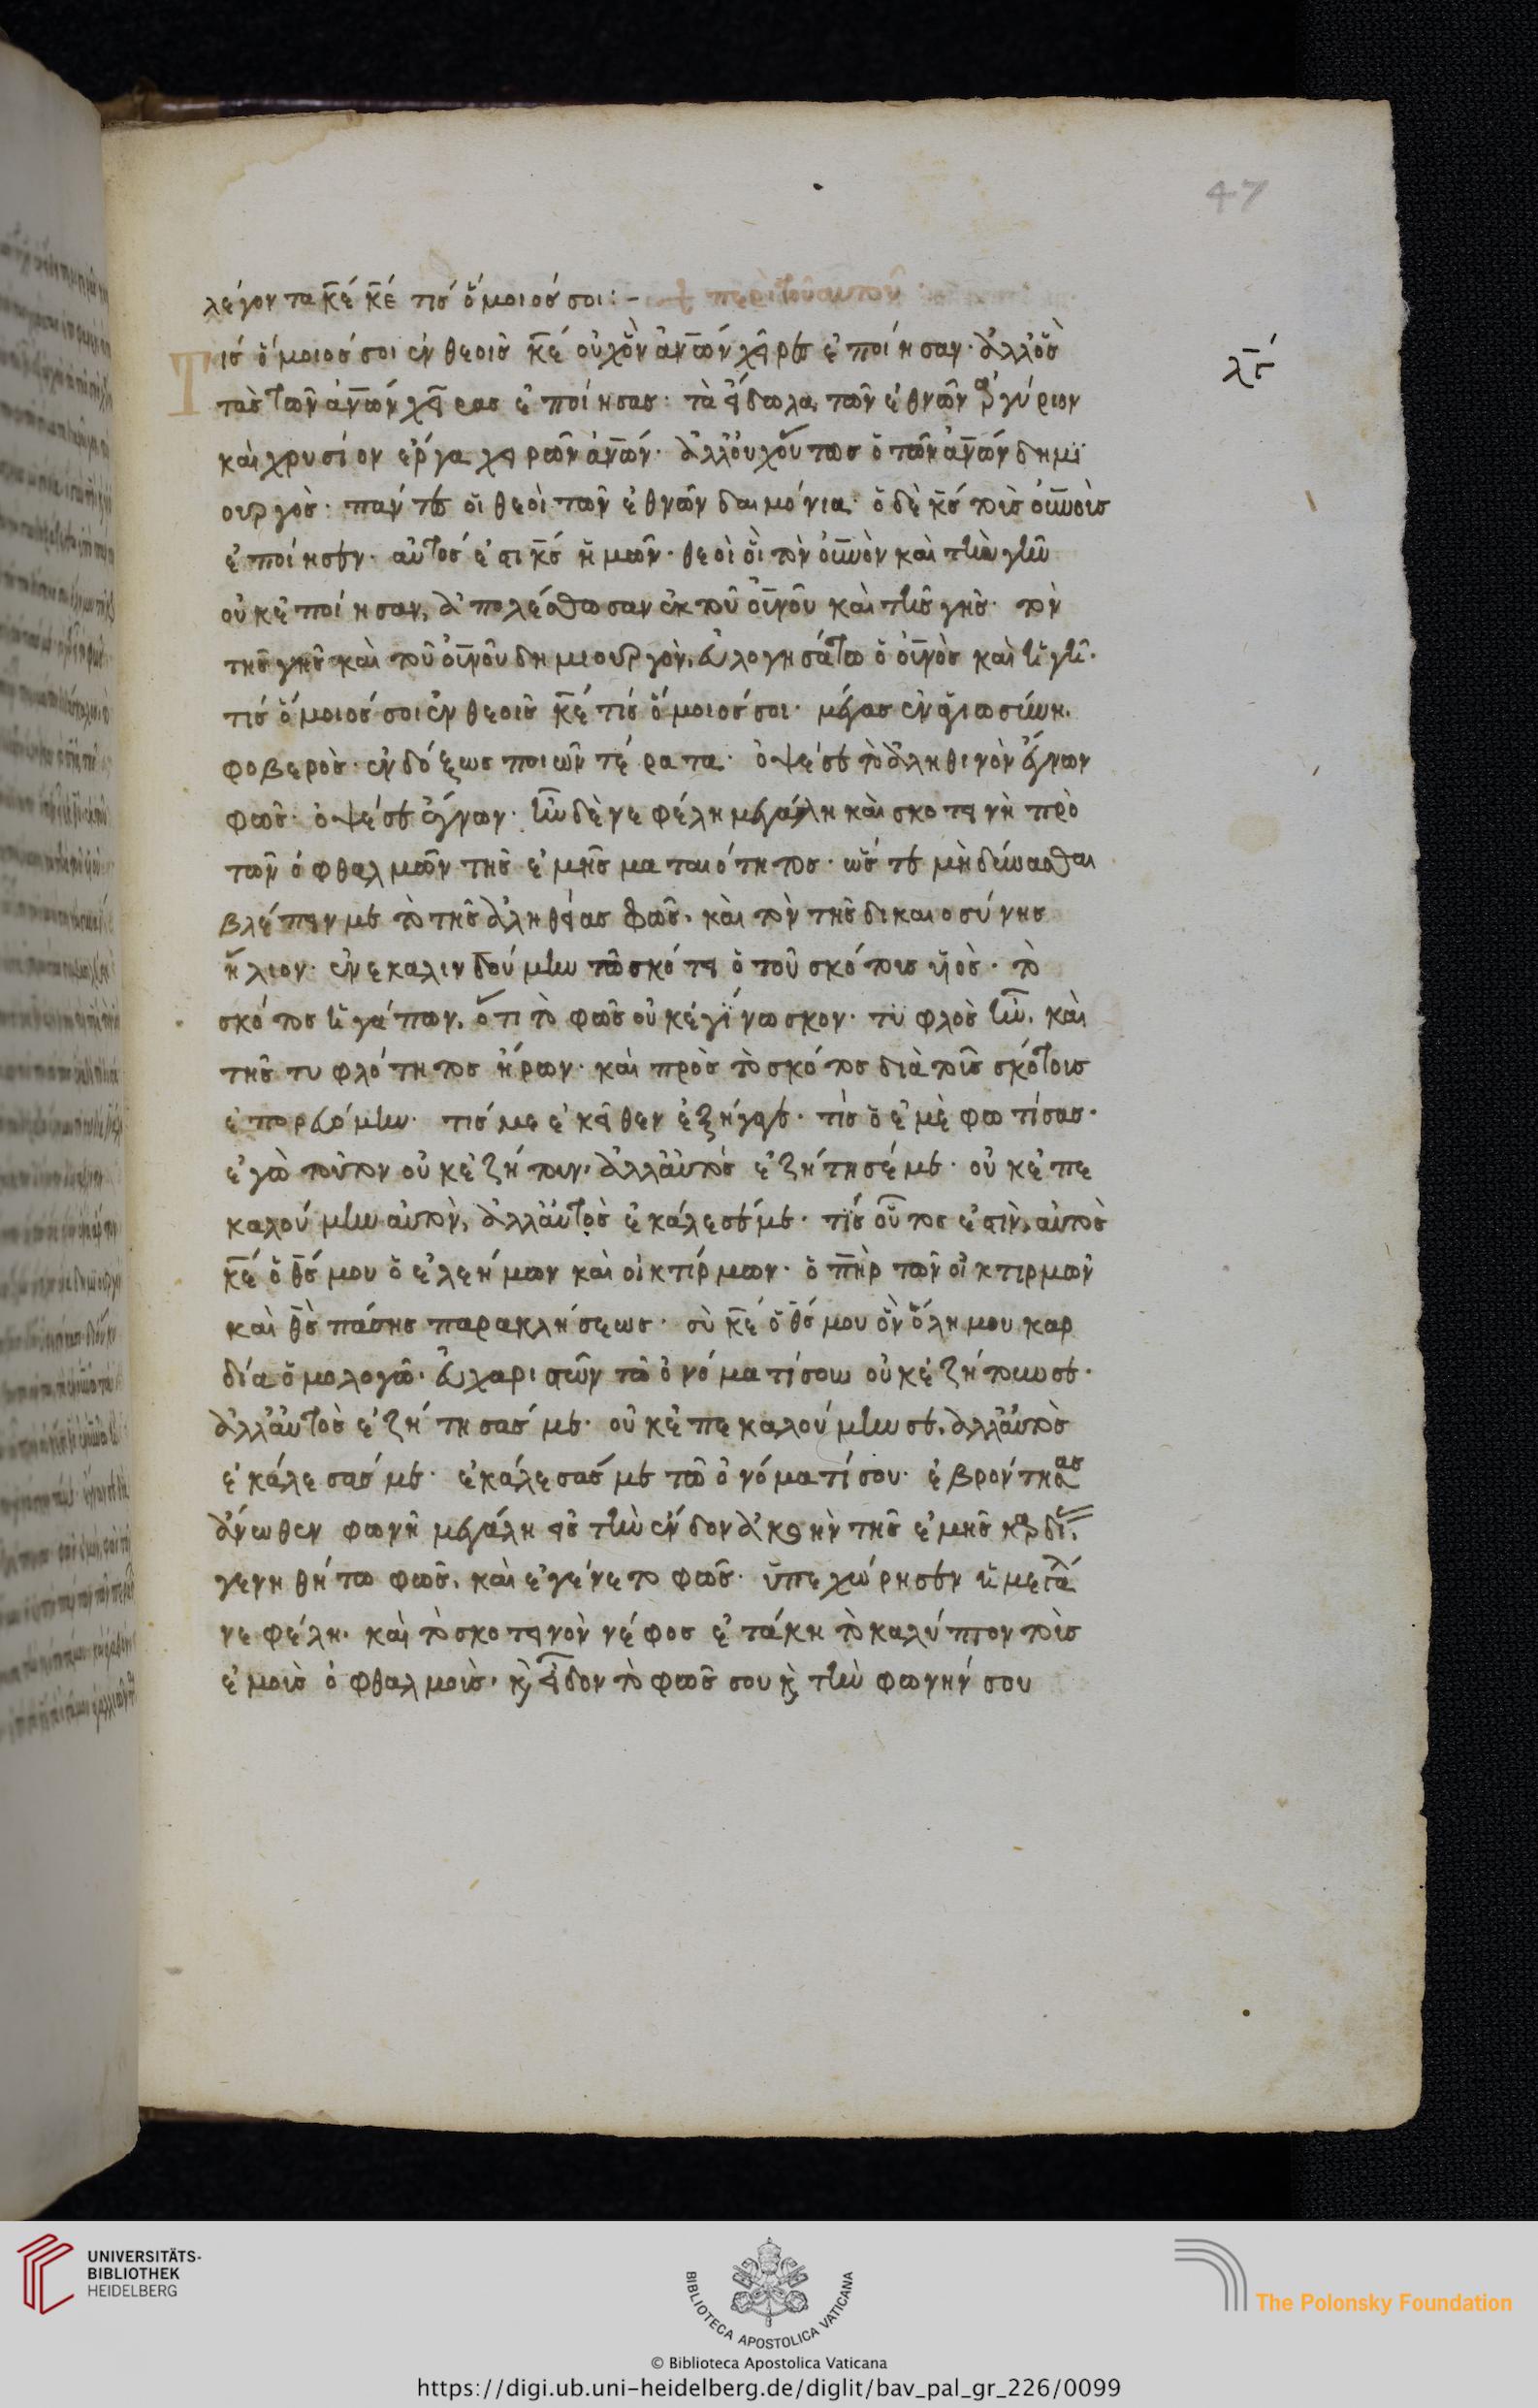 47
λέγοντα κ̅έ κ̅ε τίς ὅμοιός σοι:- περὶ τοῦ αὐτοῦ
Τίς ὅμοιός σοι ἐν θεοῖς κ̅έ οὐχ ὃν ἀν̅ων χεῖρες ἐποίησαν· ἀλλ' ὃς
τὰς τῶν ἀν̅ων χεῖρας ἐποίησας· τὰ εἴδωλα τῶν ἐθνῶν ἀργύριον
καὶ χρυσίον ἔργα χειρῶν ἀν̅ων· ἀλλ' οὐχ οὕτως ὁ τῶν ἀν̅ων δημϊ
ουργὸς· πάντες οἱ θεοὶ τῶν ἐθνῶν δαιμόνια· ὁ δὲ κ̅ς τοὺς οὐ̅νοὺς
ἐποίησεν· αὐτός ἐστι κ̅ς ἡμῶν· θεοὶ οἳ τὸν οὐ̅νὸν καὶ τὴν γῆν
οὐκ ἐποίησαν, ἀπολέσθωσαν ἐκ τοῦ οὐ̅νοῦ καὶ τῆς γῆς· τὸν
τῆς γῆς καὶ τοῦ οὐ̅νοῦ δημιουργὸν, εὐλογησάτω ὁ οὐ̅νὸς καὶ ἡ γῆ·
τίς ὅμοιός σοι ἐν θεοῖς κ̅έ τίς ὅμοιός σοι· μέγας ἐν ἁγιωσύνη.
φοβερὸς· ἐνδόξως ποιῶν τέρατα· ὀψέ σε τὸ ἀληθινὸν ἔγνων
φῶς· ὀψέ σε ἔγνων· ἦν δὲ νεφέλη μεγάλη καὶ σκοτεινὴ πρὸ
τῶν ὀφθαλμῶν τῆς ἐμῆς ματαιότητος· ὥστε μὴ δύνασθαι
βλέπειν με τὸ τῆς ἀληθείας φῶς, καὶ τὸν τῆς δικαιοσύνης
ἥλιον· ἐνεκαλινδούμην τῶ σκότει ὁ τοῦ σκότους υἱὸς· τὸ
σκότος ἠγάπων, ὅτι τὸ φῶς οὐκ ἐγίνωσκον· τυφλὸς ἦν, καὶ
τῆς τυφλότητος ἤρων· καὶ πρὸς τὸ σκότος διὰ τοῦ σκότους
ἐπορευόμην· τίς με ἐκεῖθεν ἐξήγαγε· τίς ὁ ἐμὲ φωτίσας·
ἐγὼ τοῦτον οὐκ ἐζήτουν, ἀλλ' αὐτὸς ἐζήτησέ με· οὐκ ἐπε
καλούμην αὐτὸν, ἀλλ' αὐτὸς ἐκάλεσέ με· τίς οὗτος ἐστὶν, αὐτὸς
κ̅έ ὁ θ̅ς μου ὁ ἐλεήμων καὶ οἰκτίρμων· ὁ π̅ηρ τῶν οἰκτιρμῶν
καὶ θ̅ς πάσης παρακλήσεως· σὺ κ̅έ ὁ θ̅ς μου ὃν ὅλη μου καρ
δία ὁμολογῶ. εὐχαριστῶν τῶ ὀνόματί σου οὐκ ἐζήτουν σε·
ἀλλ' αὐτὸς ἐζήτησάς με· οὐκ ἐπεκαλούμην σε, ἀλλ' αὐτὸς
ἐκάλεσάς με· ἐκάλεσάς με τῶ ὀνόματί σου· ἐβρόντησας
ἄνωθεν φωνῆ μεγάλη εἰς τὴν ἔνδον ἀκοὴν τῆς ἐμῆς καρδί.
γενηθήτω φῶς, καὶ ἐγένετο φῶς· ὑπεχώρησεν ἡ μεγάλ
νεφέλη· καὶ τὸ σκοτεινὸν νέφος ἐτάκη τὸ καλύπτον τοὺς
ἐμοὺς ὀφθαλμοὺς, κ̀ εἶδον τὸ φῶς σου κ̀ τὴν φωνήν σου
λ̅ϛ́
UNIVERSITÄTS-
BIBLIOTHEK
HEIDELBERG
BIBLIOTECA APOSTOLICA VATICANA
The Polonsky Foundation
© Biblioteca Apostolica Vaticana
https://digi.ub.uni-heidelberg.de/diglit/bav_pal_gr_226/0099